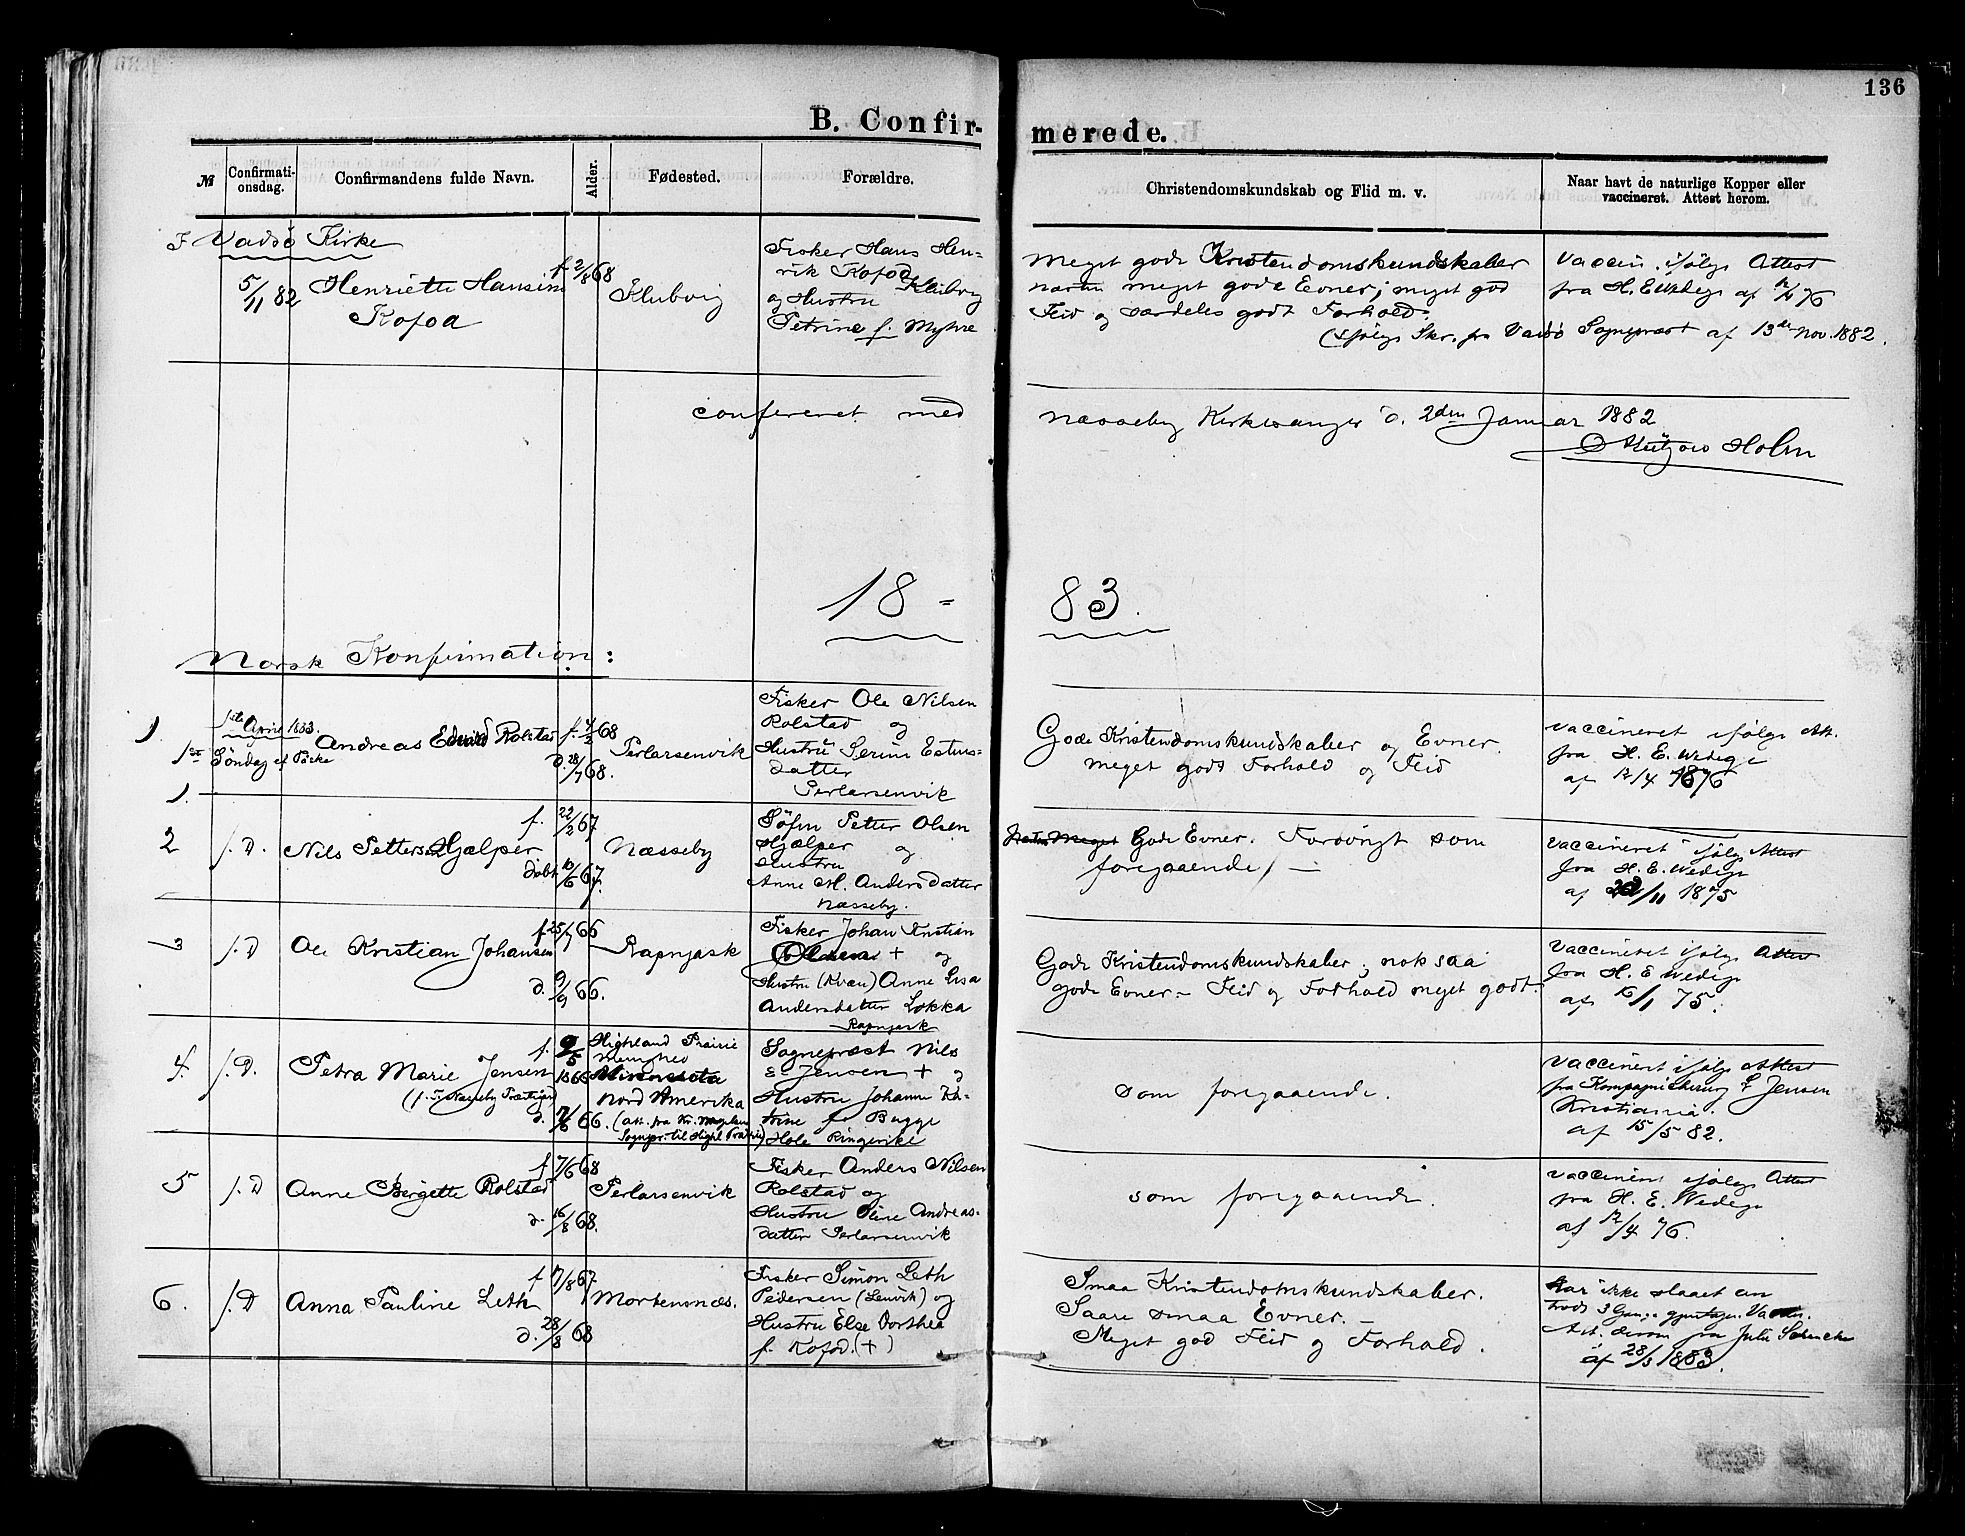 136
B. Confir-
merede.
№
Confirmati-
onsdag.
Confirmandens fulde Navn.
Alder.
Fødested.
Forældre.
Christendomskundskab og Flid m. v.
Naar havt de naturlige Kopper eller
vaccineret. Attest herom.
I Vadsø Kirke
5/11 82
Henriette Hansine
Kofod
f. 2/8 68
Klubvig
Fisker Hans Hen-
rik Kofod
og Hustru Klubvig
Petrine f. Myhre
Meget gode Kristendomskundskaber
meget gode Evner; meget god
Flid og særdeles godt Forhold.
(Ifølge Skr. fra Vadsø Sognepræst af 13de Nov. 1882.
Vaccin. ifølge Attest
fra H. E. Wedege af 12/4 76
confereret med
Næsseby Kirkesanger d. 2den Januar 1882
Holm
18 -
83.
Norsk Konfirmation:
1
1ste April 1883.
1ste Søndag ef Påske
Andreas Edvard Rolstad
f. 4/2 68
d. 28/7 68.
Perlarsenvik
Fisker Ole Nilsen
Rolstad og
Hustru Serine Estens-
datter
Perlarsenvik
Gode Kristendomskundskaber og Evner.
Meget godt Forhold og Flid
Vaccineret ifølge Att.
fra H. E. Wedege
af 12/4 1876
1.
2
s. D.
Nils Petters. Hjælper
f. 22/2 67
døbt 10/6 67.
Næsseby
Søfin Petter Olsen
Hjælper og
Hustru
Anne M. Andersdatter
Næsseby.
Meget Gode Evner. Forøvrigt som
foregaaende
Vaccineret ifølge Attest
fra H. E. Wedege
af /11 1875
3
s. D
Ole Kristian Johansen
f 25/7 66
d. 9/9 66.
Rapnjask
Fisker Johan Kristian
+ og
Hustru (Kvæn) Anne Lisa
Andersdatter Lokka
Rapnjask
Gode Kristendomskundskaber; nok saa
gode Evner - Flid og Forhold meget godt.
Vaccineret ifølge Attest
fra H. E. Wedege
af /11 75.
4.
s. D.
Petra Marie Jensen
(f. T. Næsseby Præstgjæld)
f. 9/5
1866
d. 7/6 66.
Highland Prairie
Menighed
Minnesota
Nord Amerika
(Att. fra Kr. Magelsen
Sognepr. til Highl Prairie)
Sognepræst Nils
E Jensen + og
Hustru Johanne Ka-
trine f. Bugge
Hole Ringerike
som foregaaende.
Vaccineret ifølge Attest
fra Kompagnikirurg L. Jensen
Kristiania.
af 15/5 82.
5
s. D
Anne Bergette Rolstad
f 7/6 68
d. 16/8 68.
Perlarsenvik
Fisker Anders Nilsen
Rolstad og
Hustru Oline Andreas-
datter Perlarsenvik
som foregaaende.
Vaccineret ifølge Attest
fra H. E. Wedege
af 12/4 76.
6.
s. D
Anna Pauline Leth
f 7/8 67
d. 28/8 68
Mortensnæs.
Fisker Simon Leth
Pedersen (Lenvik) og
Hustru Else Dorthea
f. Kofod. (+)
Smaa Kristendomskundskaber.
Saare smaa Evner. -
Meget god Flid og Forhold.
Har ikke slaaet an
trods 3 Gange gjentagen Vaccin.
Att. derom fra Julie Schancke
af 28/3 1883.